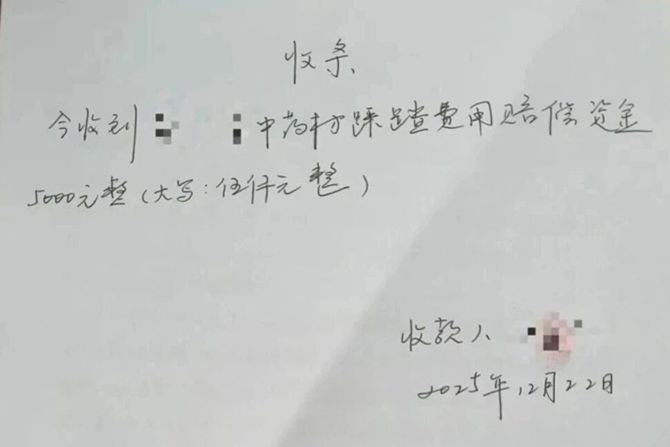 收条
今收到 中药材踩踏费用赔偿资金
5000元整（大写：伍仟元整）
收款人
2025年12月22日